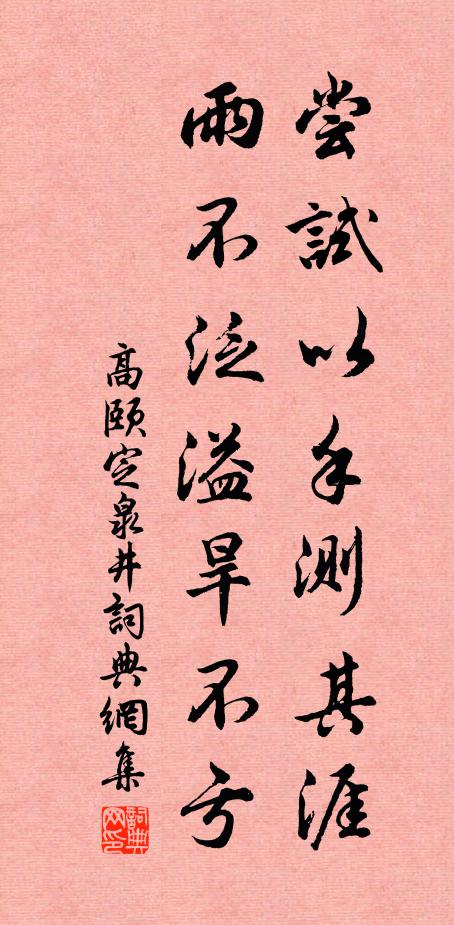 尝試以手測其涯
雨不泛溢旱不亏
高頤定泉井詞典網集
詞典网印